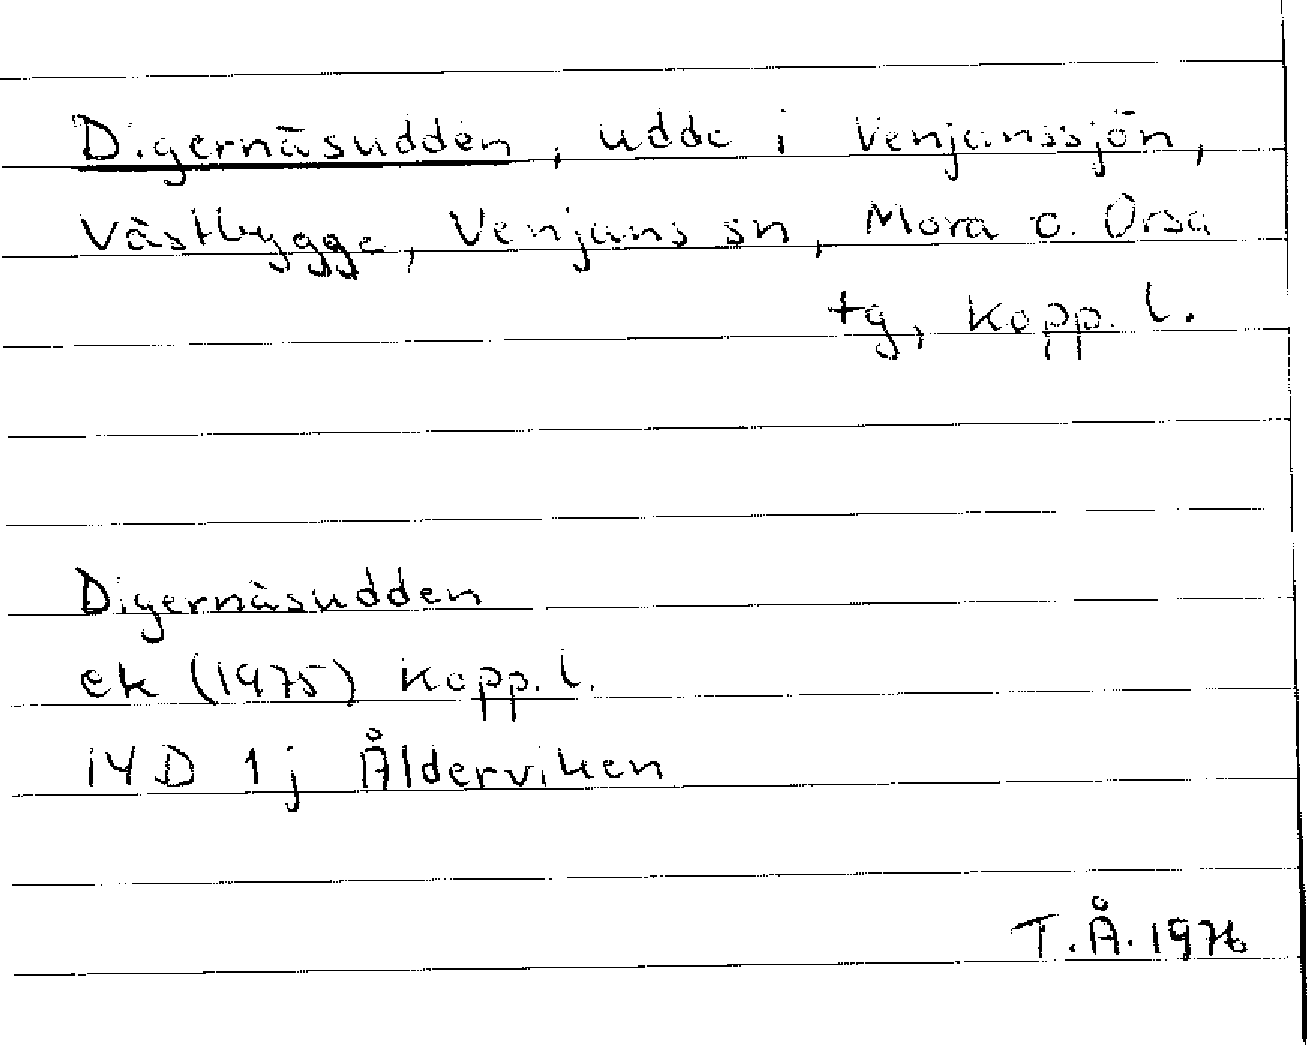 Digernäsudden, udde i Venjanssjön,
Västbygge, Venjans sn, Mora o. Orsa
tg, Kopp. l.
Digernäsudden
ek (1975) Kopp. l.
14 D 1 j Ålderviken
T.Å. 1976